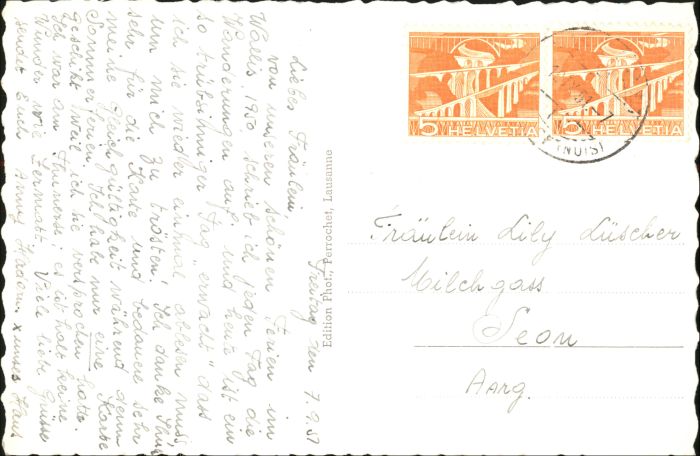 Freitag den 7.9.51
Liebes Fräulein,
von unseren schönen Ferien im
Wallis, 1950 schrieb ich jeden Tag die
Wanderungen auf, und heute ist ein
so trübsinniger Tag "erwacht" dass
ich sie wieder einmal ablesen muss,
um mich zu trösten! Ich danke Ihnen
sehr für die Karte und bedaure sehr
meine Gleichgültigkeit während den
Sommerferien. Ich habe nur eine Karte
geschickt weil ich sie versprochen hatte.
Ich war am es ist halt keine
Wunder wie Zermatt. Viele liebe Grüsse
sendet Euch Hans
Edition Phot. Perrochet, Lausanne
5 HELVETIA
5 HELVETIA
(NUIS)
Fräulein Lily Lüscher
Milchgass
Seon
Aarg.